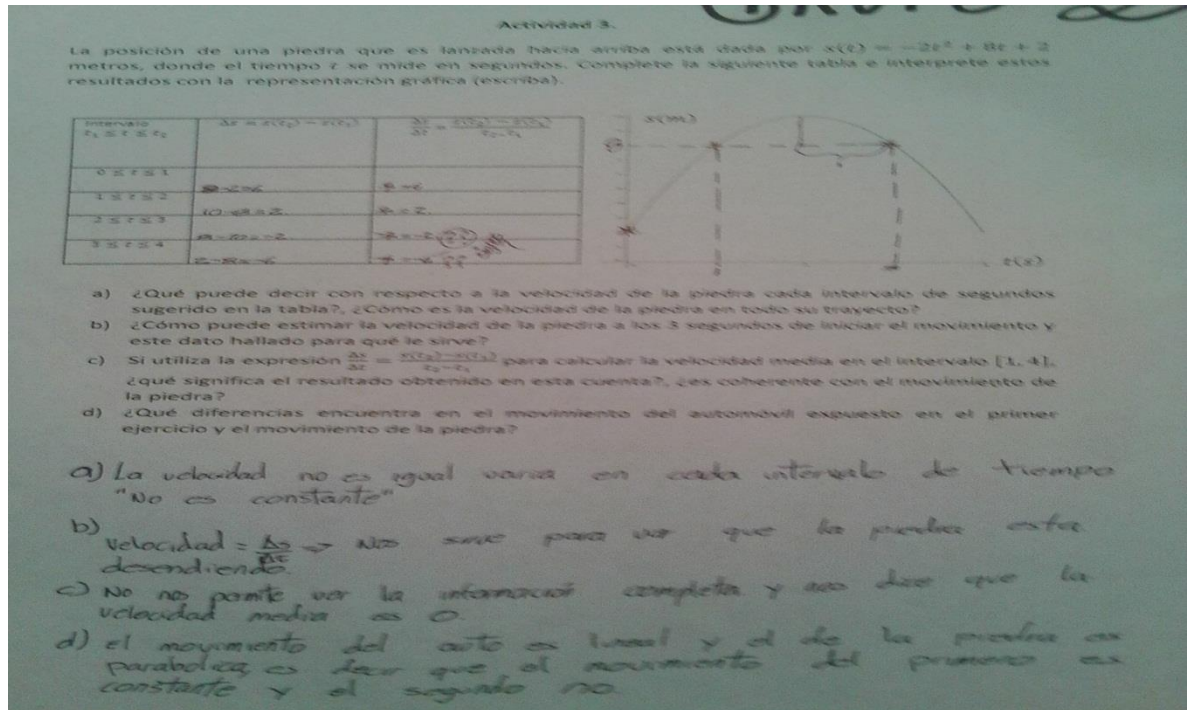 Actividad 3.
La posición de una piedra que es lanzada hacia arriba está dada por x(t) = −2t² + 8t + 2
metros, donde el tiempo t se mide en segundos. Complete la siguiente tabla e interprete estos
resultados con la representación gráfica (escriba).
Intervalo
t₁ ≤ t ≤ t₂
Δx = x(t₂) − x(t₁)
Δx/Δt = x(t₂) − x(t₁)/t₂−t₁
0 ≤ t ≤ 1
8-2=6
1 ≤ t ≤ 2
10-8=2
2 ≤ t ≤ 3
8-10=-2
3 ≤ t ≤ 4
2-8=-6
x(m)
t(s)
a) ¿Qué puede decir con respecto a la velocidad de la piedra cada intervalo de segundos
sugerido en la tabla?, ¿Cómo es la velocidad de la piedra en todo su trayecto?
b) ¿Cómo puede estimar la velocidad de la piedra a los 3 segundos de iniciar el movimiento y
este dato hallado para qué le sirve?
c) Si utiliza la expresión Δx/Δt = x(t₂)−x(t₁)/t₂−t₁ para calcular la velocidad media en el intervalo [1, 4],
¿qué significa el resultado obtenido en esta cuenta?, ¿es coherente con el movimiento de
la piedra?
d) ¿Qué diferencias encuentra en el movimiento del automóvil expuesto en el primer
ejercicio y el movimiento de la piedra?
a) La velocidad no es igual varia en cada intervalo de tiempo
"No es constante"
b) velocidad = → Nos sirve para ver que la piedra esta
desendiendo.
c) No nos permite ver la información completa y nos dice que la
velocidad media es 0.
d) el movimiento del auto es lineal y el de la piedra es
parabolica, es decir que el movimiento del primero es
constante y el segundo no.